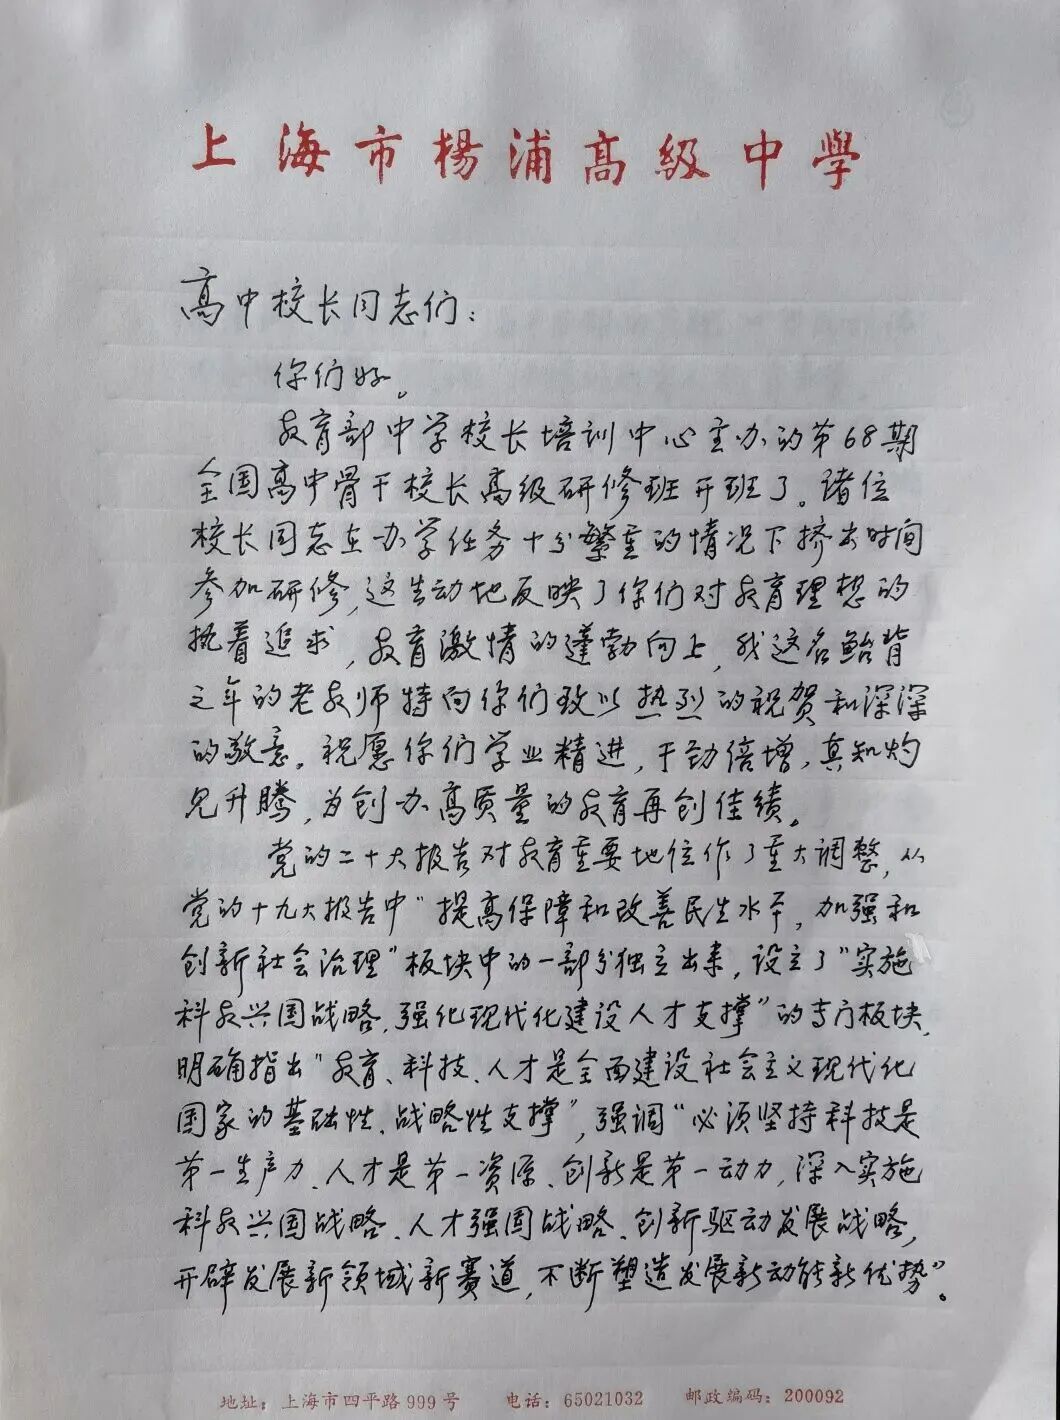 上海市楊浦高級中學
高中校长同志们：
你们好。
教育部中学校长培训中心主办的第68期
全国高中骨干校长高级研修班开班了。诸位
校长同志在办学任务十分繁重的情况下挤出时间
参加研修，这生动地反映了你们对教育理想的
执着追求，教育激情的蓬勃向上，我这名鲐背
之年的老教师特向你们致以热烈的祝贺和深深
的敬意。祝愿你们学业精进，干劲倍增，真知灼
见升腾，为创办高质量的教育再创佳绩。
党的二十大报告对教育重要地位作了重大调整，从
党的十九大报告中“提高保障和改善民生水平，加强和
创新社会治理”板块中的一部分独立出来，设立了“实施
科教兴国战略，强化现代化建设人才支撑”的专门板块，
明确指出“教育、科技、人才是全面建设社会主义现代化
国家的基础性、战略性支撑”，强调“必须坚持科技是
第一生产力、人才是第一资源、创新是第一动力，深入实施
科教兴国战略、人才强国战略、创新驱动发展战略，
开辟发展新领域新赛道，不断塑造发展新动能新优势”。
地址：上海市四平路999号 电话：65021032 邮政编码：200092